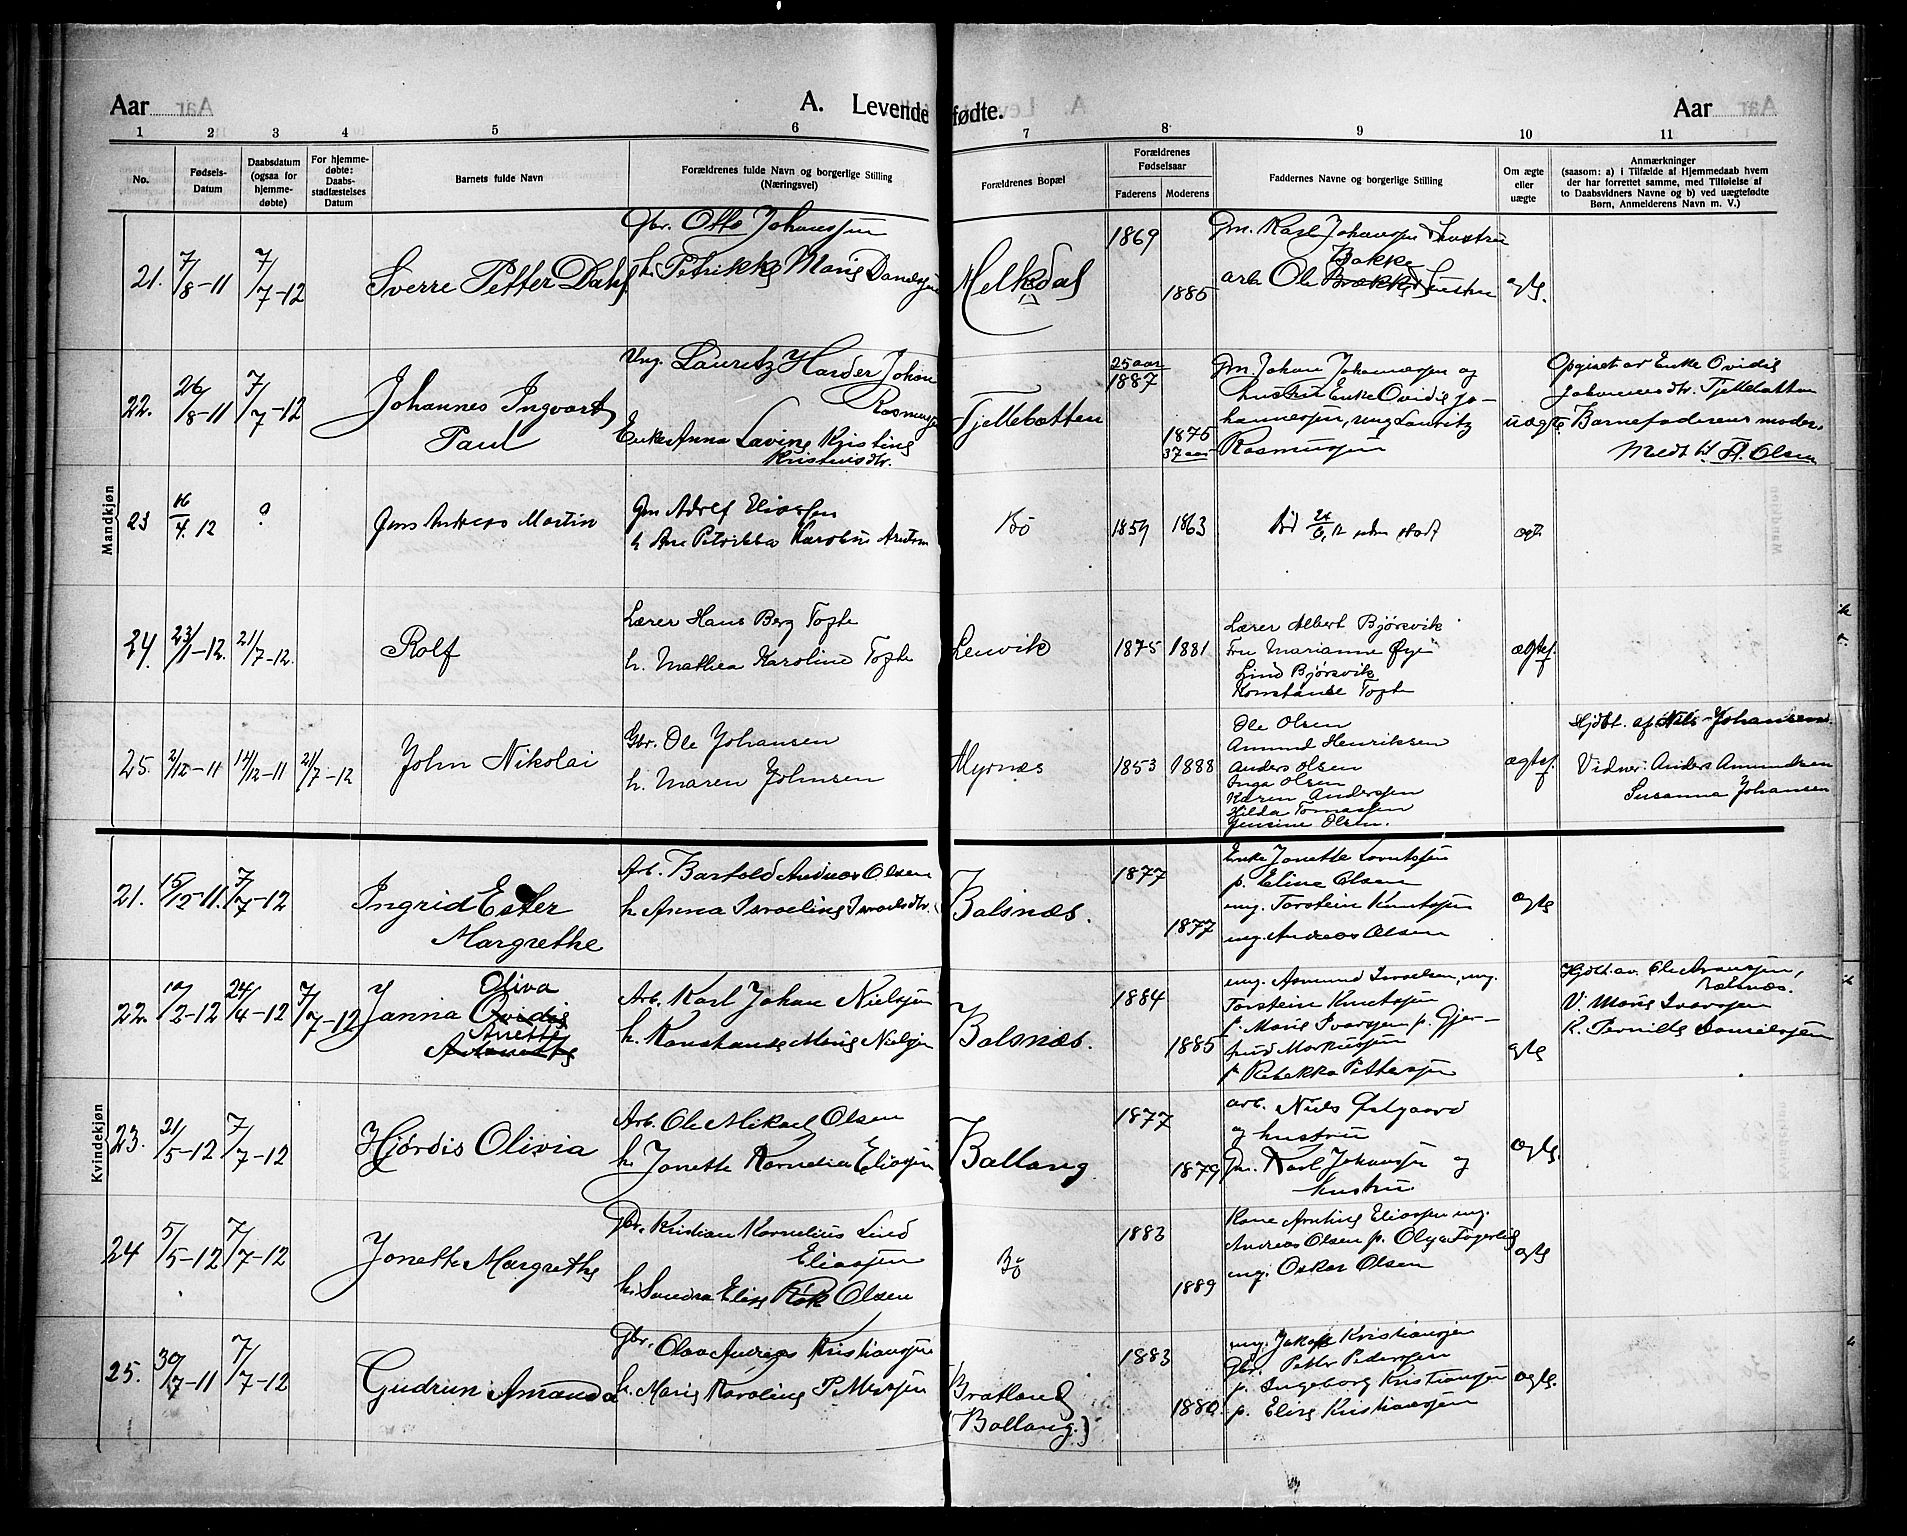 Aar
A. Levende
fødte.
Aar
1 2 3 4 5 6 7 8 9 10 11
No.
Fødsels-
Datum
Daabsdatum
(ogsaa for
hjemme-
døbte)
For hjemme-
døbte:
Daabs-
stadfæstelses
Datum
Barnets fulde Navn
Forældrenes fulde Navn og borgerlige Stilling
(Næringsvei)
Forældrenes Bopæl
Forældrenes
Fødselsaar
Faderens Moderens
Faddernes Navne og borgerlige Stilling
Om ægte
eller
uægte
Anmærkninger
(saasom: a) i Tilfælde af Hjemmedaab hvem
der har forrettet samme, med Tilføielse af
to Daabsvidners Navne og b) ved uægtefødte
Børn, Anmelderens Navn m. V.)
Mandkjøn
21. 7/8-11 7/7-12 Sverre Petter
Gbr. Otto Johanssen
h. Petrikke Marie
Melkedal
1869
1885
Gm. Karl Johansen & hustru
Bakke
arb Ole hustru
ægte.
22. 26/8-11 7/7-12 Johannes Ingvart
Paul
Ung. Lauritz Harder Johan
Rasmussen
Enke Anna Lavine Kristine
Kristensdtr.
Fjellebotten
25 aar
1887
1875
37 aar
Gm. Johan Johannessen og
hustru Enke Ovidie Jo-
hannessen, ung Lauritz
Rasmussen
uægte
Opgivet av Enke Ovidie
Johannesdtr. Fjellebotten
Barnefaderens moder.
Medt
23 16/4.12 ? Jens Andreas Martin
Gm Adolf Eliassen
h Ane Petrikka Karoline
Bø
1859 1863
ægte
24. 23/1-12. 21/7-12. Rolf
Lærer Hans Berg Tofte
h. Mathea Karoline Tofte
Lenvik
1875 1881
Lærer Albert Bjørsvik
Fru Marianne Øye
Lind Bjørsvik
Konstanse Tofte
ægtef.
25. 2/12-11 14/12-11 21/7-12 John Nikolai
Gbr. Ole Johansen
h. Maren Johnsen
Myrnæs
1853 1888
Ole Olsen
Amund Henriksen
Anders Olsen
Inga Olsen
Karen Anderssen
Hilda Tomassen
Jensine Olsen.
ægtef.
Hjdbt. af Nils Johansen
Vidner: Anders Amundsen
Susanna Johansen
Kvindekjøn
21. 15/12-11. 7/7-12 Ingrid Ester
Margrethe
Arb. Bartold Andreas Olsen
h. Anna Israeline Israelsdtr.
Balsnæs.
1877
1877
Enke Jonette
p. Eline Olsen
ung. Torstein Knutssen
ung. Andreas Olsen
ægte
22. 10/2-12 24/4-12 7/7-12 Janna
Oliva
Ovidie
Anette
Antonette
Arb. Karl Johan Nielssen
h. Konstanse Marie Nielssen
Balsnæs.
1884
1885
ung. Asmund Israelsen, ung.
Torstein Knutssen
p. Marie Ivarssen p. Gjer-
trud Markussen
p. Rebekka Petterssen
ægte
Hjdbt. av
Balsnæs.
V. Marie Ivarssen
K. Pernille Danielssen
23. 21/5-12 7/7-12 Hjørdis Olivia
Arb. Ole Mikael Olsen
h. Jonette Kornelia Eliassen
Ballang
1877
1879
arb. Niels Østgaard
og hustru
Gm. Karl Johanssen og
hustru.
ægte.
24 5/5-12 7/7-12 Jonette Margrethe
Gbr. Kristian Kornelius Lind
Eliassen
h. Sandra Elise Olsen
Bø
1883
1889
Kone Eliassen ung.
Andreas Olsen p. Olga
ung. Oskar Olsen
ægte
25. 30/7-11 7/7-12 Gudrun Amanda
Gbr. Olav Andreas Kristianssen
h. Marie Karoline Petterssen
Bratland
(Ballang.)
1883
1880.
ung. Jakob Kristianssen
Gbr. Petter Pederssen
p. Ingeborg Kristianssen
p. Elise Kristianssen
ægte.